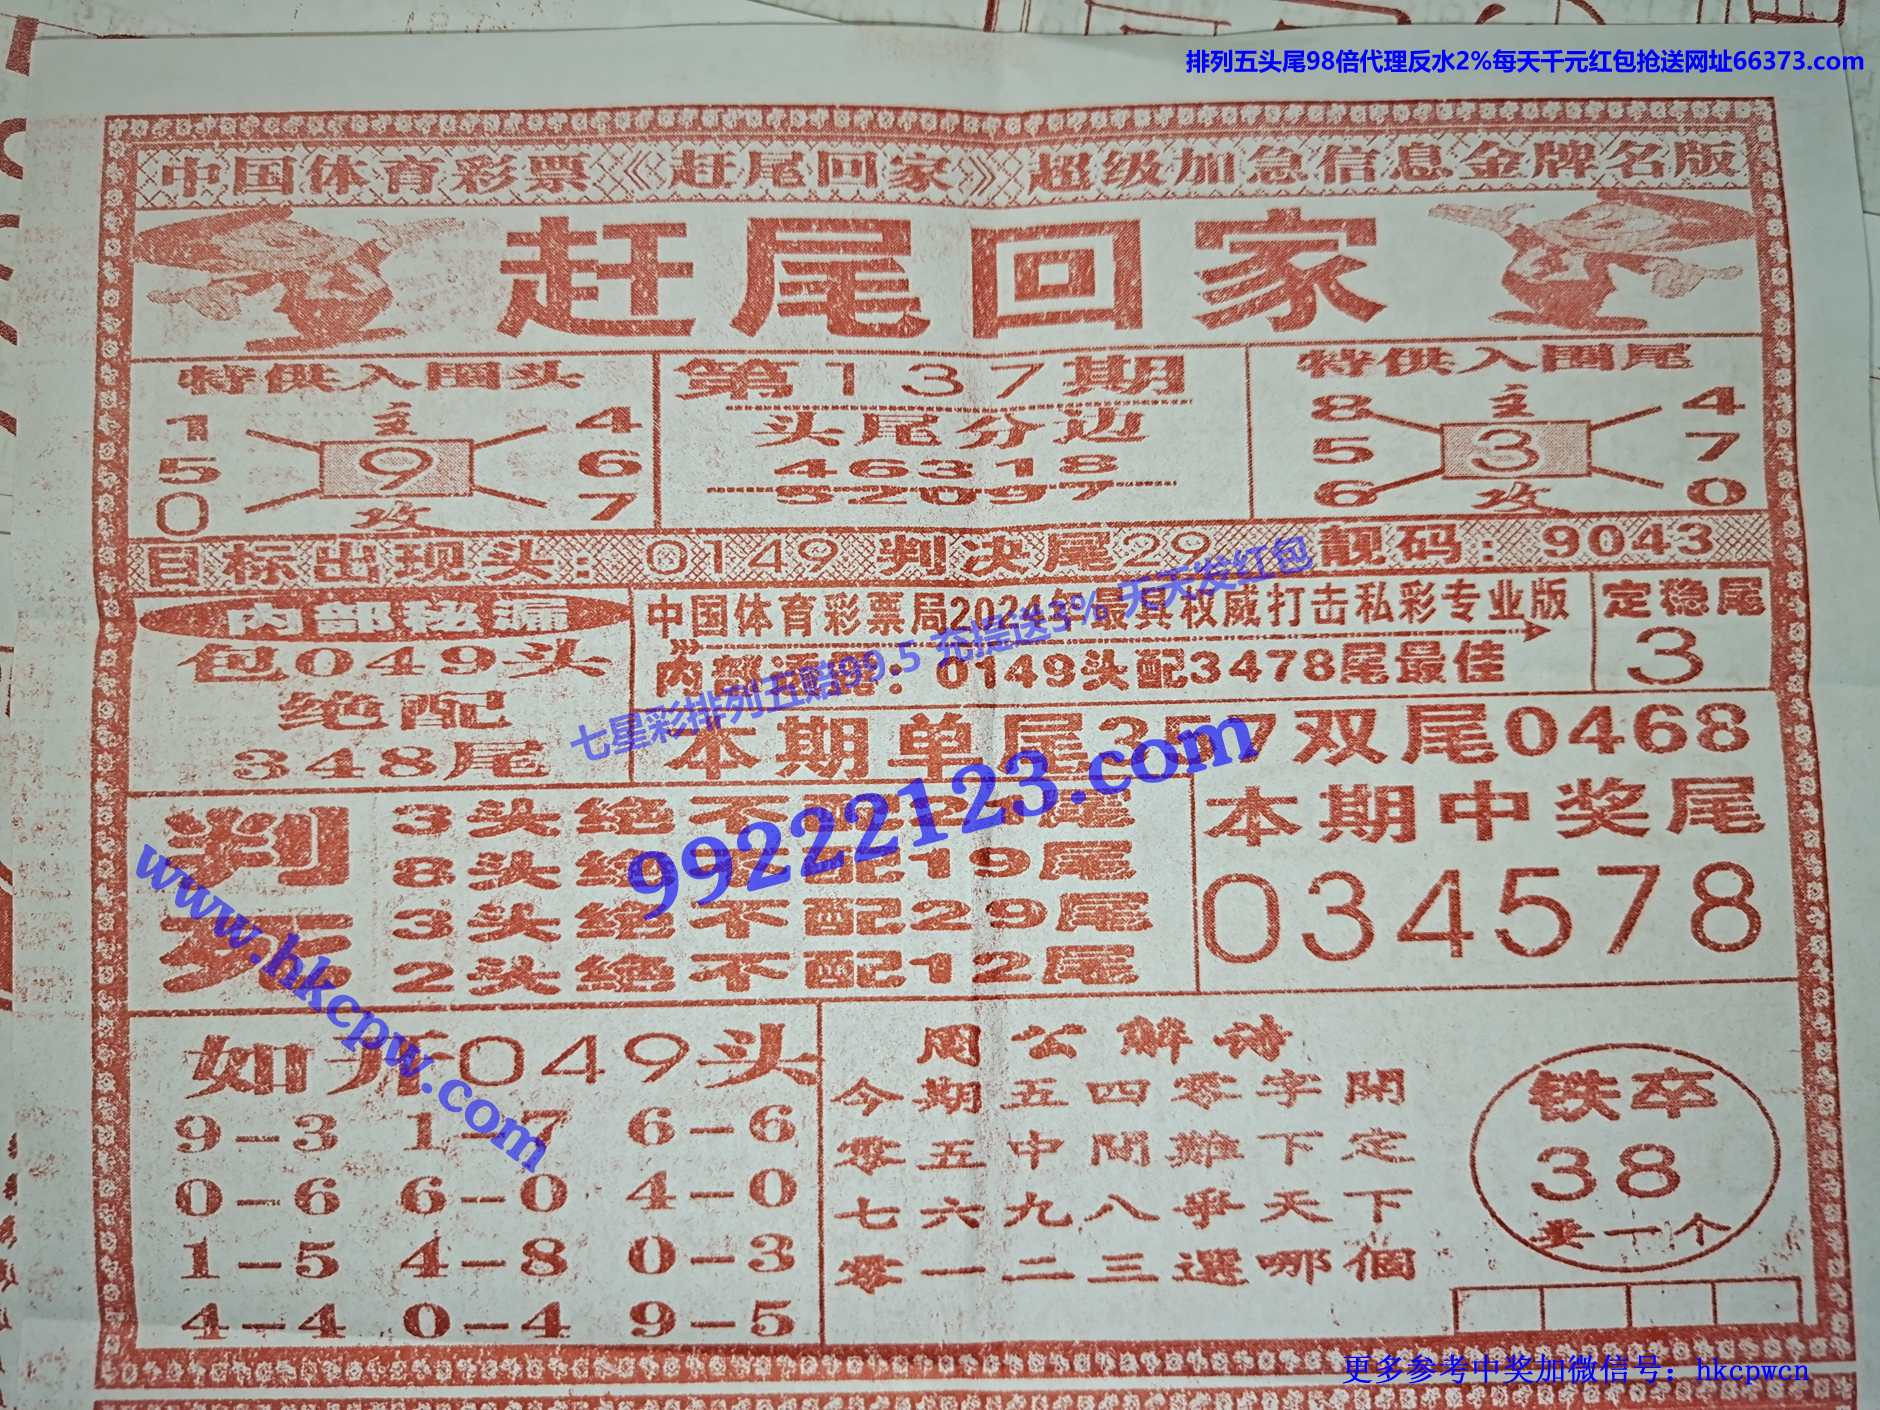 排列五头尾98倍代理反水2%每天千元红包抢送网址66373.com
中国体育彩票《赶尾回家》超级加急信息金牌名版
赶尾回家
特供入围头
主
1 4
5 9 6
0 7
攻
第137期
头尾分边
46318
52097
特供入围尾
主
8 4
5 3 7
6 0
攻
目标出现头：0149 判决尾29 靓码：9043
内部秘漏
包049头
绝配
348尾
中国体育彩票局2024年最具权威打击私彩专业版
内部透露：0149头配3478尾最佳
定稳尾
3
七星彩排列五赔99.5 充提送3% 天天发红包
本期单尾357双尾0468
99222123.com
判死
3头绝不配21尾
8头绝不配19尾
3头绝不配29尾
2头绝不配12尾
本期中奖尾
034578
www.hkcpw.com
如开049头
9-3 1-7 6-6
0-6 6-0 4-0
1-5 4-8 0-3
4-4 0-4 9-5
周公解诗
今期五四零字開
零五中間難下定
七六九八爭天下
零一二三選哪個
铁卒
38
卖一个
更多参考中奖加微信号：hkcpwcn